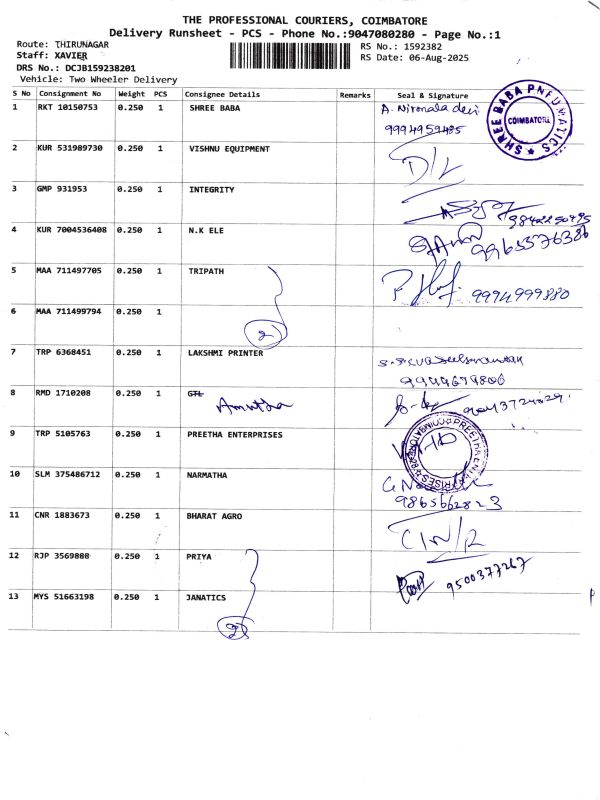 THE PROFESSIONAL COURIERS, COIMBATORE
Delivery Runsheet - PCS - Phone No.:9047080280 - Page No.:1
Route: THIRUNAGAR
Staff: XAVIER
DRS No.: DCJB159238201
Vehicle: Two Wheeler Delivery
RS No.: 1592382
RS Date: 06-Aug-2025
S No Consignment No Weight PCS Consignee Details Remarks Seal & Signature
1 RKT 10150753 0.250 1 SHREE BABA A. Nirmala devi
9994959485
SHREE BABA PNEUMATICS
COIMBATORE
2 KUR 531989730 0.250 1 VISHNU EQUIPMENT D/L
3 GMP 931953 0.250 1 INTEGRITY
4 KUR 7004536408 0.250 1 N.K ELE
9965576386
5 MAA 711497705 0.250 1 TRIPATH
9994999880
6 MAA 711499794 0.250 1
2
7 TRP 6368451 0.250 1 LAKSHMI PRINTER
8 RMD 1710208 0.250 1 GTL
Amutha
9 TRP 5105763 0.250 1 PREETHA ENTERPRISES
PREETHA ENTERPRISES
10 SLM 375486712 0.250 1 NARMATHA
9865662823
11 CNR 1883673 0.250 1 BHARAT AGRO
12 RJP 3569800 0.250 1 PRIYA
9500377267
13 MYS 51663198 0.250 1 JANATICS
2